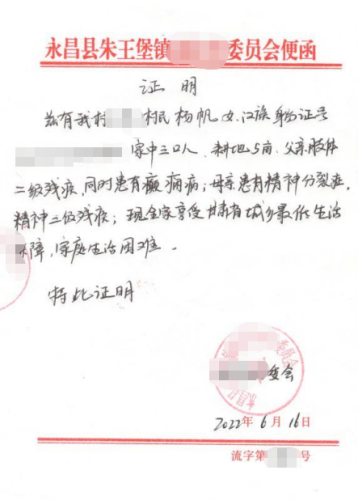 永昌县朱王堡镇 委员会便函
证 明
兹有我村 村民杨帆,女,汉族,身份证号
家中三口人、耕地5亩、父亲肢体
二级残疾,同时患有癫痫病;母亲患有精神分裂症,
精神二级残疾;现全家享受甘肃省城乡最低生活
保障,家庭生活困难。
特此证明
委会
2022年6月16日
流字第 号